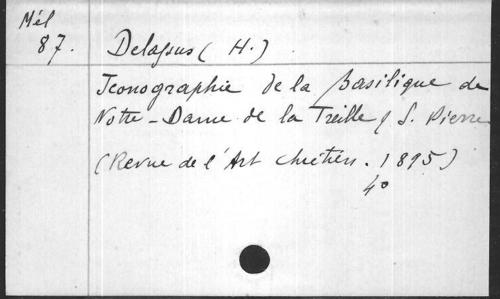 Mél
87. Delassus (H.)
Iconographie de la Basilique de
Notre-Dame de la Treille & S. Pierre
(Revue de l'Art chrétien. 1895)
4°